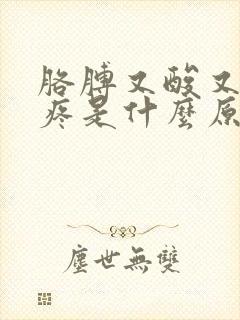 胳膊又酸又
疼是什麼原
塵世無雙